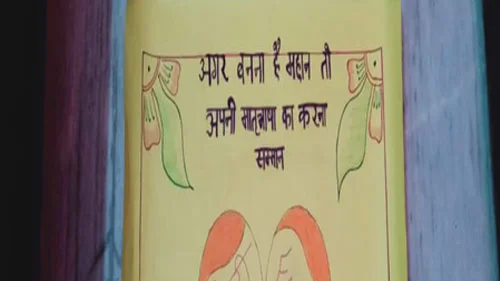 अगर बनना है महान तो
अपनी मातृभाषा का करना
सम्मान